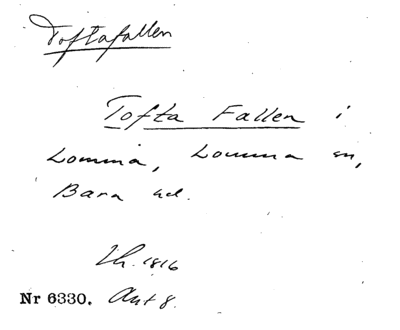 Toftafallen
Tofta Fallen i
Lomma, Lomma sn,
Bara hd.
Lh. 1816
Nr 6330. Akt 8.